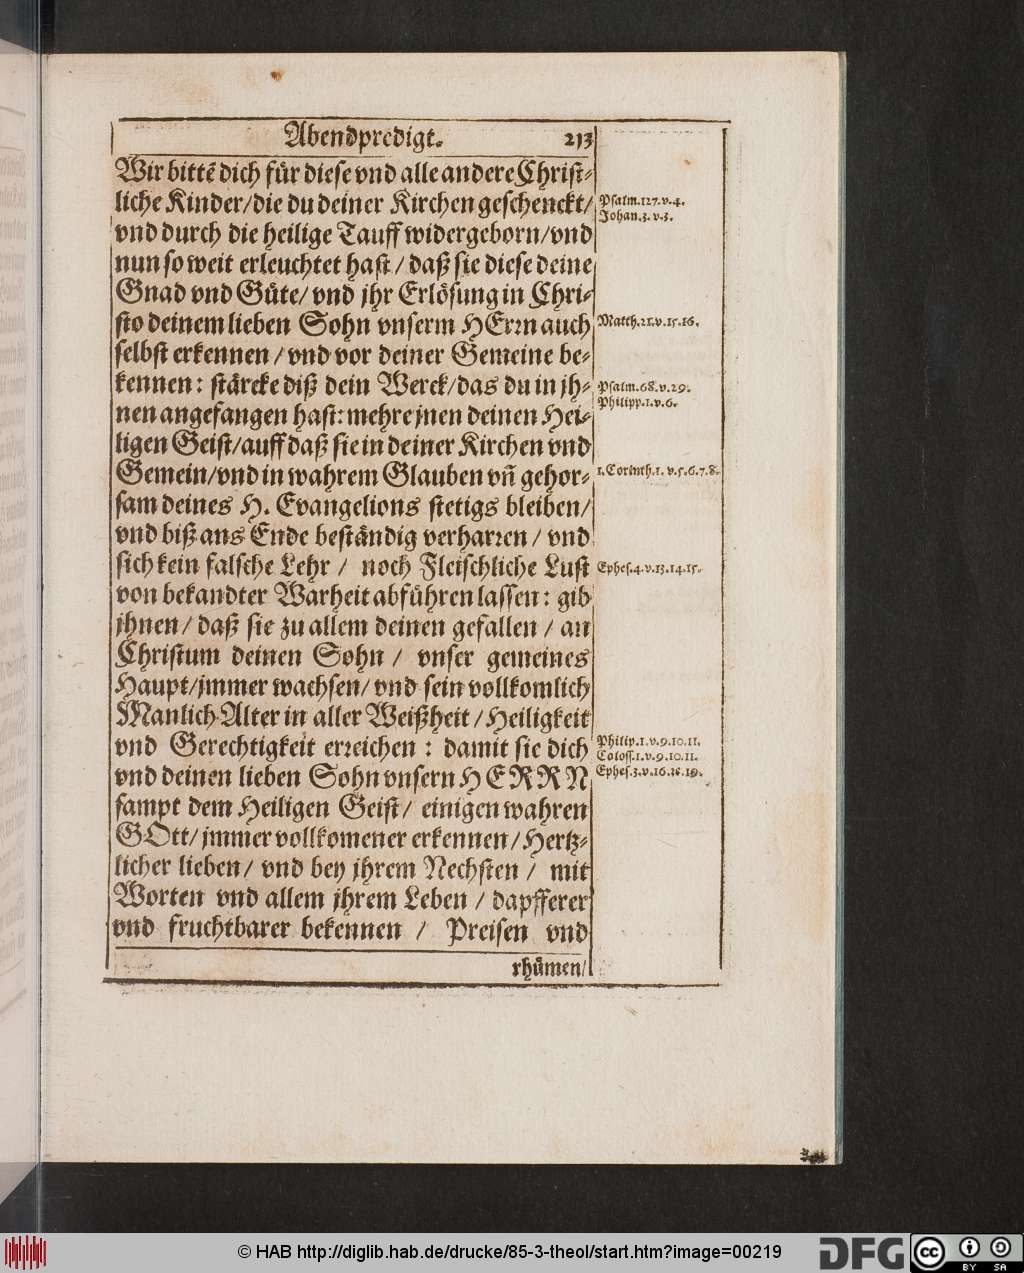 Abendpredigt. 213
Wir bittẽ dich fuͤr diese vnd alle andere Christ-
liche Kinder/die du deiner Kirchen geschenckt/
vnd durch die heilige Tauff widergeborn/vnd
nun so weit erleuchtet hast / daß sie diese deine
Gnad vnd Guͤte/ vnd jhr Erloͤsung in Chri-
sto deinem lieben Sohn vnserm HErꝛn auch
selbst erkennen / vnd vor deiner Gemeine be-
kennen: staͤrcke diß dein Werck/das du in jh-
nen angefangen hast: mehre jnen deinen Hei-
ligen Geist/auff daß sie in deiner Kirchen vnd
Gemein/vnd in wahrem Glauben vñ gehor-
sam deines H. Evangelions stetigs bleiben/
vnd biß ans Ende bestaͤndig verharꝛen / vnd
sich kein falsche Lehr / noch Fleischliche Lust
von bekandter Warheit abfuͤhren lassen: gib
jhnen / daß sie zu allem deinen gefallen / an
Christum deinen Sohn / vnser gemeines
Haupt/jmmer wachsen/ vnd sein vollkomlich
Manlich Alter in aller Weißheit / Heiligkeit
vnd Gerechtigkeit erꝛeichen : damit sie dich
vnd deinen lieben Sohn vnsern HERRN
sampt dem Heiligen Geist/ einigen wahren
GOtt/ jmmer vollkomener erkennen / Hertz-
licher lieben/ vnd bey jhrem Nechsten / mit
Worten vnd allem jhrem Leben / dapfferer
vnd fruchtbarer bekennen / Preisen vnd
rhuͤmen/
Psalm.127.v.4.
Johan.3.v.3.
Matth.21.v.15.16.
Psalm.68.v.29.
Philipp.1.v.6.
1.Corinth.1.v.5.6.7.8.
Ephes.4.v.13.14.15.
Philip.1.v.9.10.11.
Coloss.1.v.9.10.11.
Ephes.3.v.16.ꝛc.19.
© HAB http://diglib.hab.de/drucke/85-3-theol/start.htm?image=00219
DFG
cc BY SA